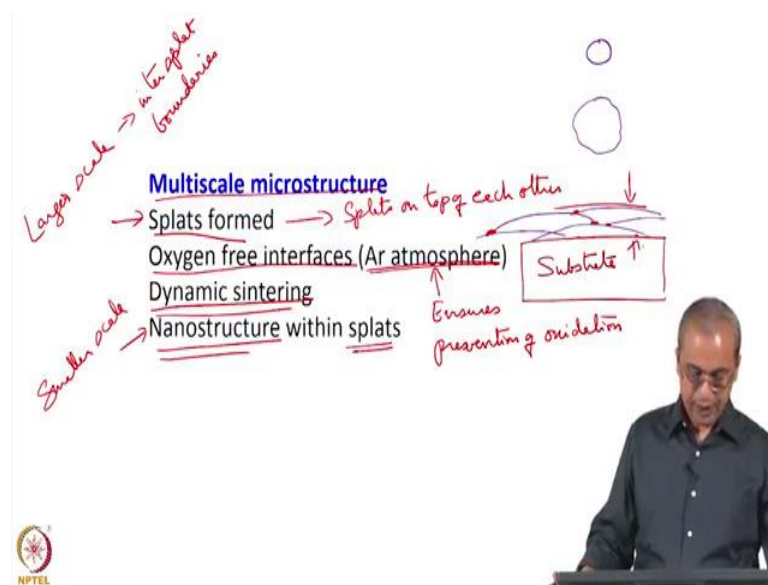 Larger scale → inter splat
boundaries
Multiscale microstructure
→ Splats formed → Splits on top of each other
Oxygen free interfaces (Ar atmosphere)
Substrate
Dynamic sintering
Ensures
preventing oxidation
Smaller scale → Nanostructure within splats
NPTEL